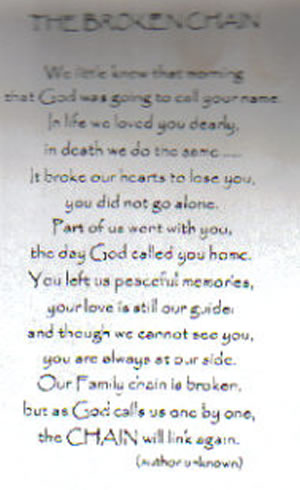 THE BROKEN CHAIN
We little knew that morning
that God was going to call your name.
In life we loved you dearly,
in death we do the same.....
It broke our hearts to lose you,
you did not go alone.
Part of us went with you,
the day God called you home.
You left us peaceful memories,
your love is still our guide;
and though we cannot see you,
you are always at our side.
Our Family chain is broken,
but as God calls us one by one,
the CHAIN will link again.
(Author unknown)